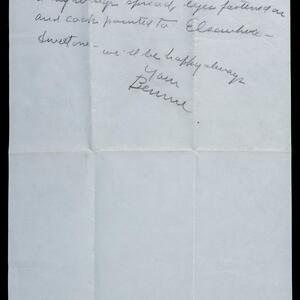 spread, eyes fastened on
and cock pointed to Elsewhere –
Sweet one – we'll be happy always
Your
Bennie.